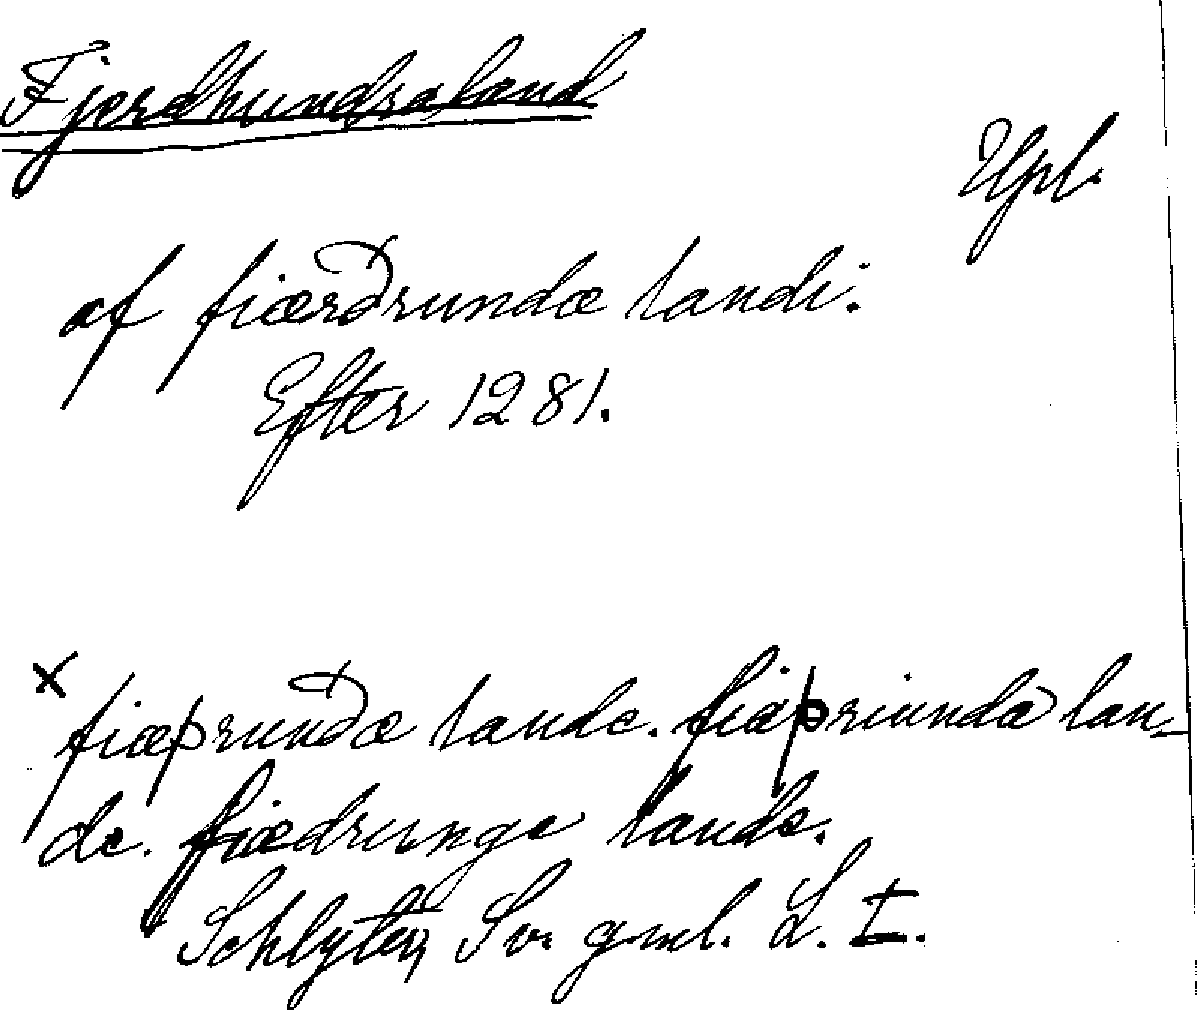 Fjerdhundraland
Upl.
af fiærðrundæ landi.
Efter 1281.
x
fiæþrundæ lande. fiæþriunda lan-
de. fiædrunge lande.
Schlyter, Sv. gml. L. I.